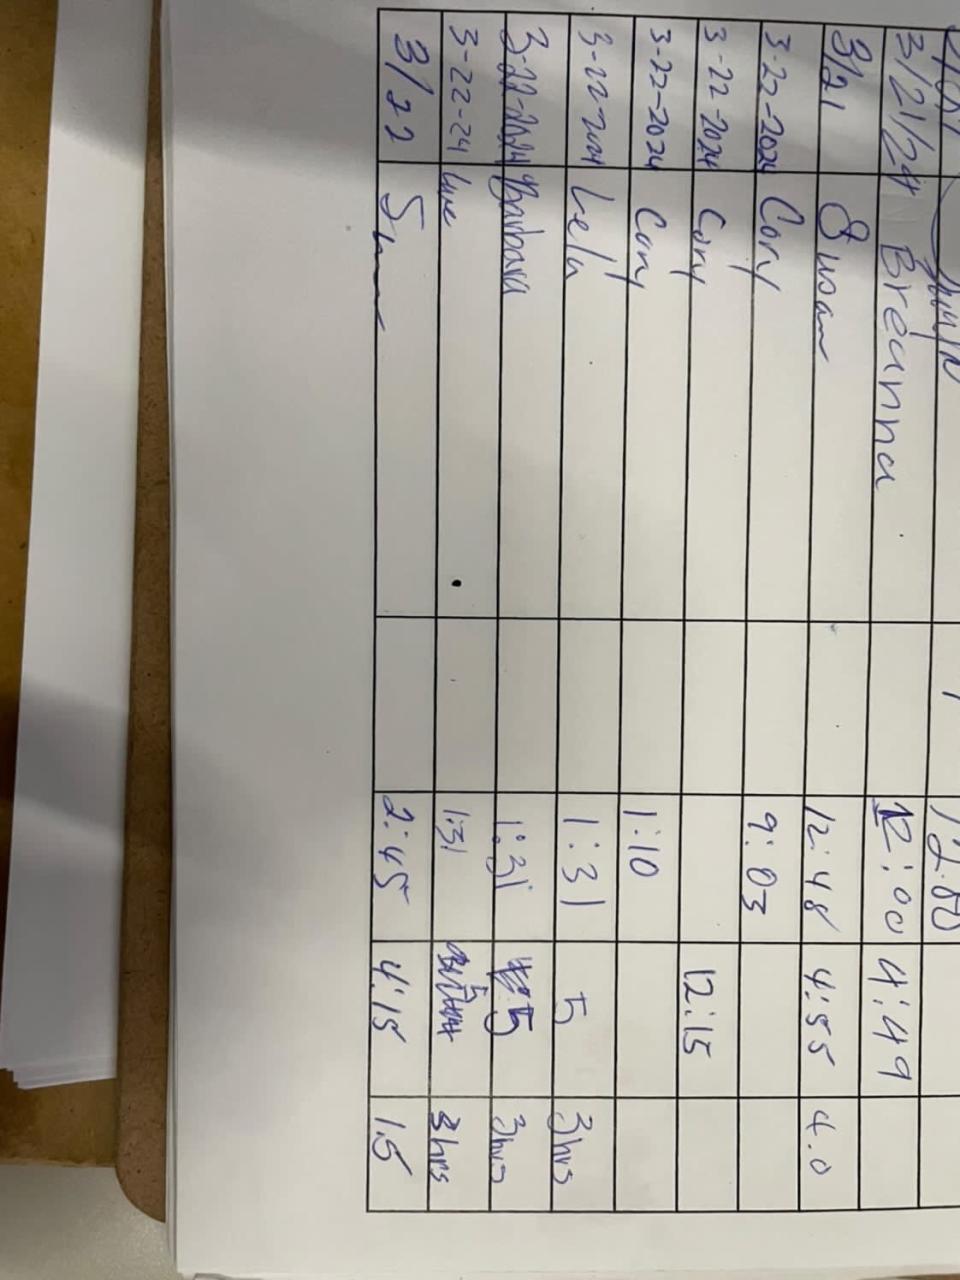 3/21/24 Breanna 12:00 4:49
3/21 Susan 12:48 4:55 4.0
3-22-2024 Cory 9:03
3-22-2024 Cory 12:15
3-22-2024 Cory 1:10
3-22-2024 Lela 1:31 5 3hrs
3-22-2024 Barbara 1:31 5 3hrs
3-22-24 1:31 3hrs
3/22 2:45 4:15 1.5